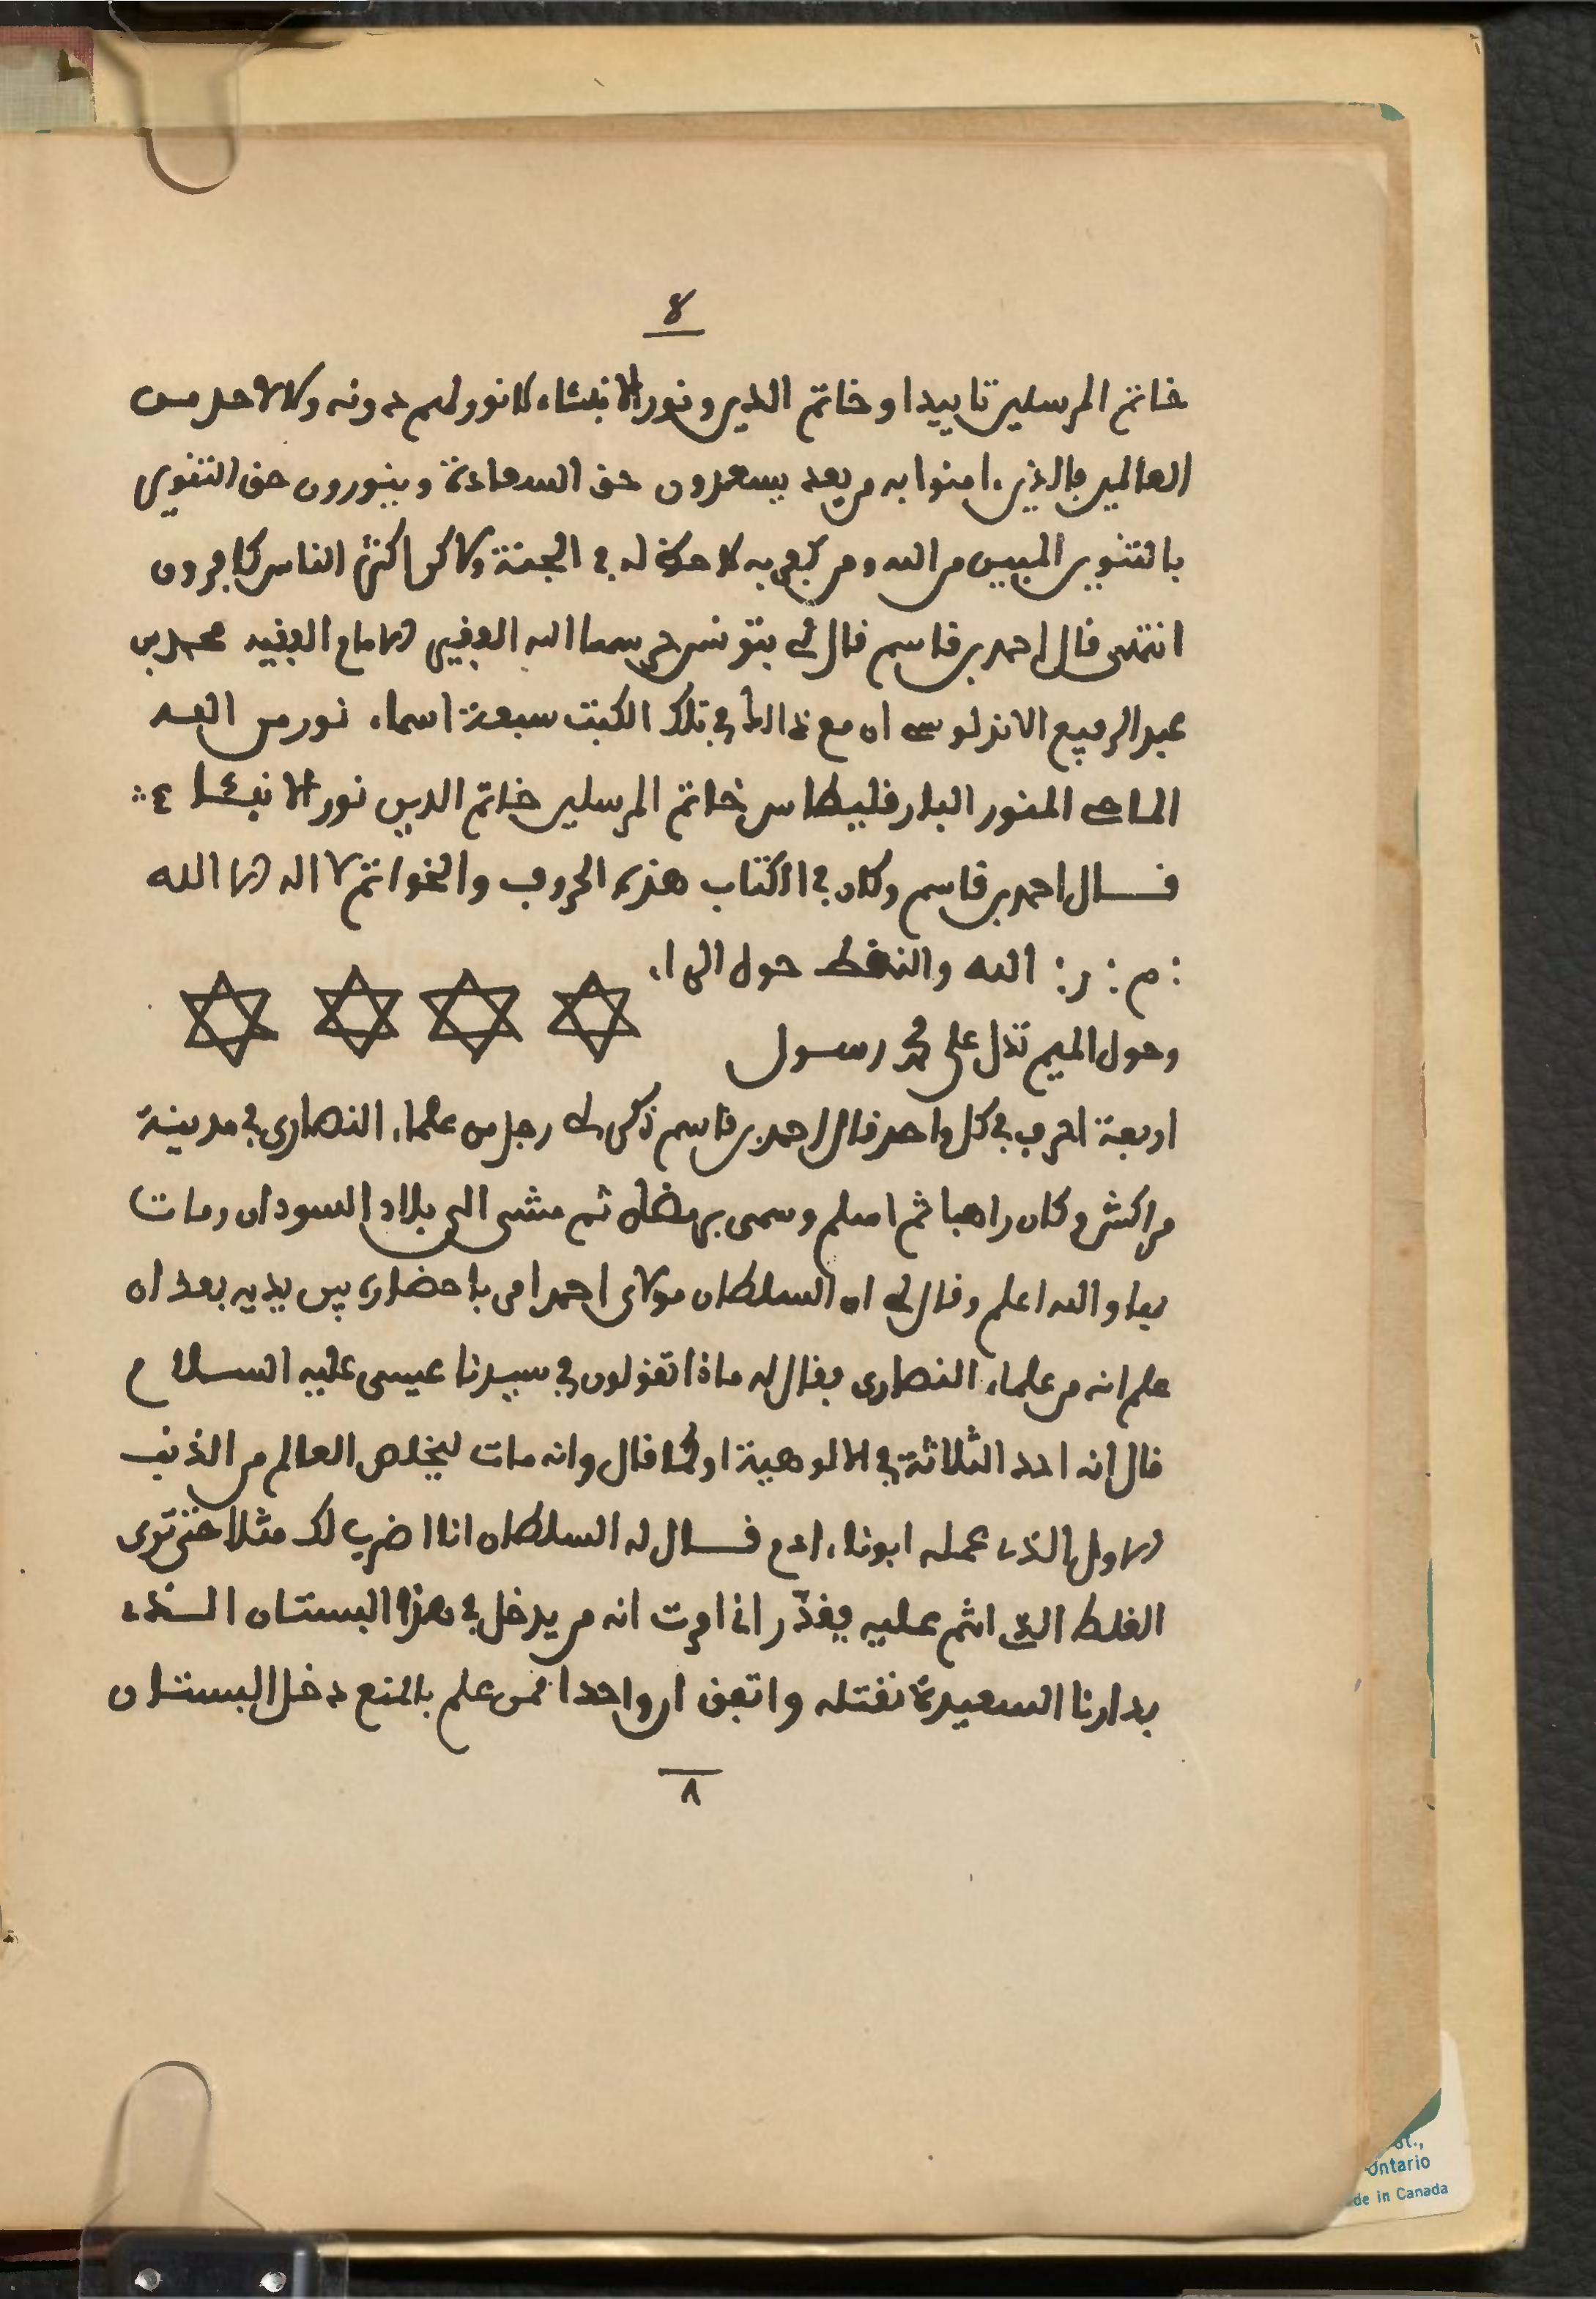 8
خاتم المرسلين تاييدا وخاتم الدين ونور الانبئاء لا نور لهم دونه ولا لاحد من
العالمين فالذين امنوا به من بعد يسعدون حق السعادة وينورون حق التنوير
بالتنوير المبين من الله ومن كفر به لا حظ له في الجنة ولاكن اكثر الناس كافرون
انتهى قال احمد بن قاسم قال لي بتونس حرسها الله الفقيه الامام الفقيه محمد بن
عبد الرفيع الاندلوسي ان مع ذالك في تلك الكتب سبعة اسماء نور من الله
الماحي المنور البارقليطاس خاتم المرسلين خاتم الدين نور الانبئا ء
قال احمد بن قاسم وكان في الكتاب هذه الحروف والخواتم لا اله الا الله
: م : ر : الله والنقط حول الراء
وحول الميم تدل على محمد رسول
اربعة احرف في كل واحد قال احمد بن قاسم ذكر لي رجل من علماء النصارى في مدينة
مراكش وكان راهبا ثم اسلم وسمى برمضان ثم مشى الى بلاد السودان ومات
بها والله اعلم وقال لي ان السلطان مولاي احمد امر باحضاره بين يديه بعد ان
علم انه من علماء النصارى فقال له ماذا تقولون في سيدنا عيسى عليه السلام
قال انه احد الثلاثة في الالوهية او كما قال وانه مات ليخلص العالم من الذنب
الاول الذي عمله ابونا ءادم قال له السلطان انا اضرب لك مثلا حتى ترى
الغلط الذي انتم عليه فقدّر اني امرت انه من يدخل في هذا البستان الذي
بدارنا السعيدة نقتله واتفق ان واحدا ممن علم بالمنع دخل البستان
٨
Ontario
de in Canada